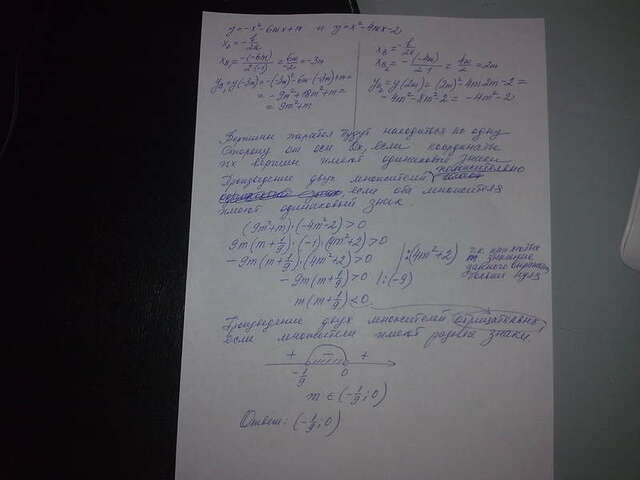 y=-x²-6mx+m и y=x²-4mx-2
x₀=-b/2a
x_B₁=-(-6m)/2·(-1)=6m/-2=-3m
y_B₁=y(-3m)=-(-3m)²-6m·(-3m)+m=
=-9m²+18m²+m=
=9m²+m
x_B=-b/2a
x_B₂=-(-4m)/2·1=4m/2=2m
y_B₂=y(2m)=(2m)²-4m·2m-2=
=4m²-8m²-2=-4m²-2
Вершины парабол будут находиться по одну
сторону от оси Ox, если координаты
их вершин имеют одинаковые знаки
Произведение двух множителей положительно
если оба множителя
имеют одинаковый знак.
(9m²+m)·(-4m²-2)>0
9m(m+1/9)·(-1)(4m²+2)>0
-9m(m+1/9)·(4m²+2)>0 |:(4m²+2) т.к. при любых
m значение
данного выражен.
больше нуля
-9m(m+1/9)>0 |:(-9)
m(m+1/9)<0
Произведение двух множителей отрицательно,
если множители имеют разные знаки
+ - +
-1/9 0
m∈(-1/9;0)
Ответ: (-1/9;0)